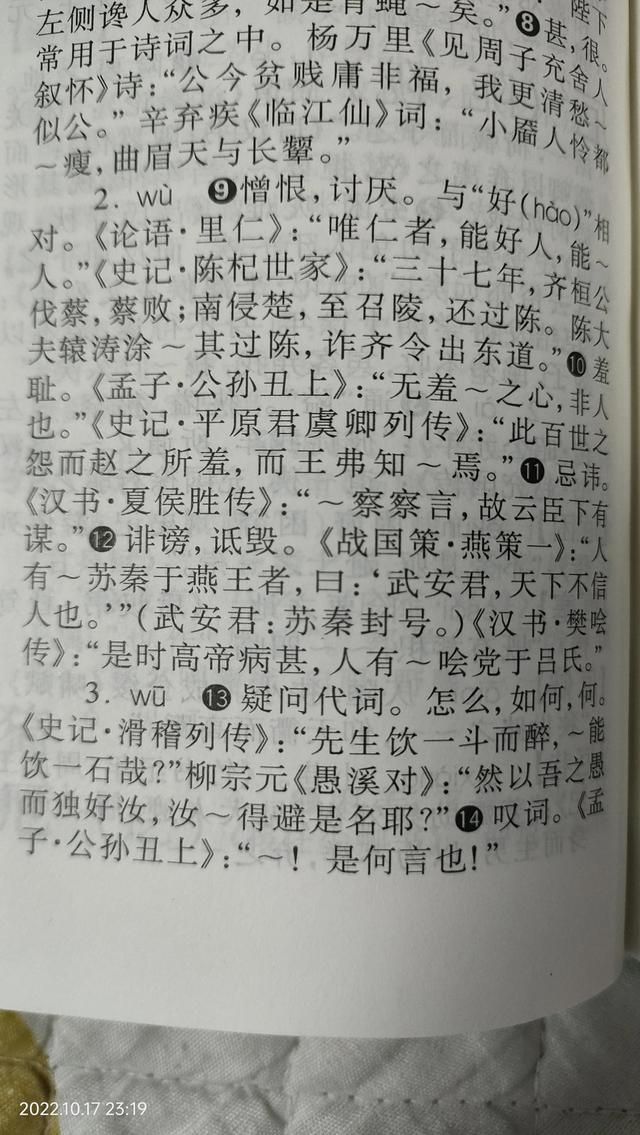 左侧谗人众多，如是青蝇～矣。”❽甚，很。人
陛下
常用于诗词之中。杨万里《见周子充舍
叙怀》诗：“公今贫贱庸非福，我更清愁～
似公。”辛弃疾《临江仙》词：“小靥人怜都
～瘦，曲眉天与长颦。”
2. wù ❾憎恨，讨厌。与“好(hào)”相
对。《论语·里仁》：“唯仁者，能好人，能～
人。”《史记·陈杞世家》：“三十七年，齐桓公
伐蔡，蔡败；南侵楚，至召陵，还过陈。陈大
夫辕涛涂～其过陈，诈齐令出东道。”❿羞
耻。《孟子·公孙丑上》：“无羞～之心，非人
也。”《史记·平原君虞卿列传》：“此百世之
怨而赵之所羞，而王弗知～焉。”⓫忌讳。
《汉书·夏侯胜传》：“～察察言，故云臣下有
谋。”⓬诽谤，诋毁。《战国策·燕策一》：“人
有～苏秦于燕王者，曰：‘武安君，天下不信
人也。’”(武安君：苏秦封号。)《汉书·樊哙
传》：“是时高帝病甚，人有～哙党于吕氏。”
3. wū ⓭疑问代词。怎么，如何，何。
《史记·滑稽列传》：“先生饮一斗而醉，～能
饮一石哉？”柳宗元《愚溪对》：“然以吾之愚
而独好汝，汝～得避是名耶？”⓮叹词。《孟
子·公孙丑上》：“～！是何言也！”
2022.10.17 23:19